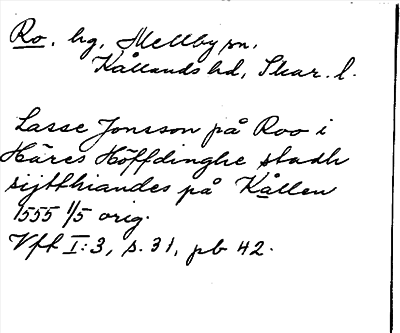 Ro, hg, Mellby sn,
Kållands hd, Skar. l.
Lasse Jonsson på Roo i
Häres Höffdinghe stadh
sijtthiandes på Kållen
1555 1/5 orig.
Vfk I:3, s. 31, pb 42.